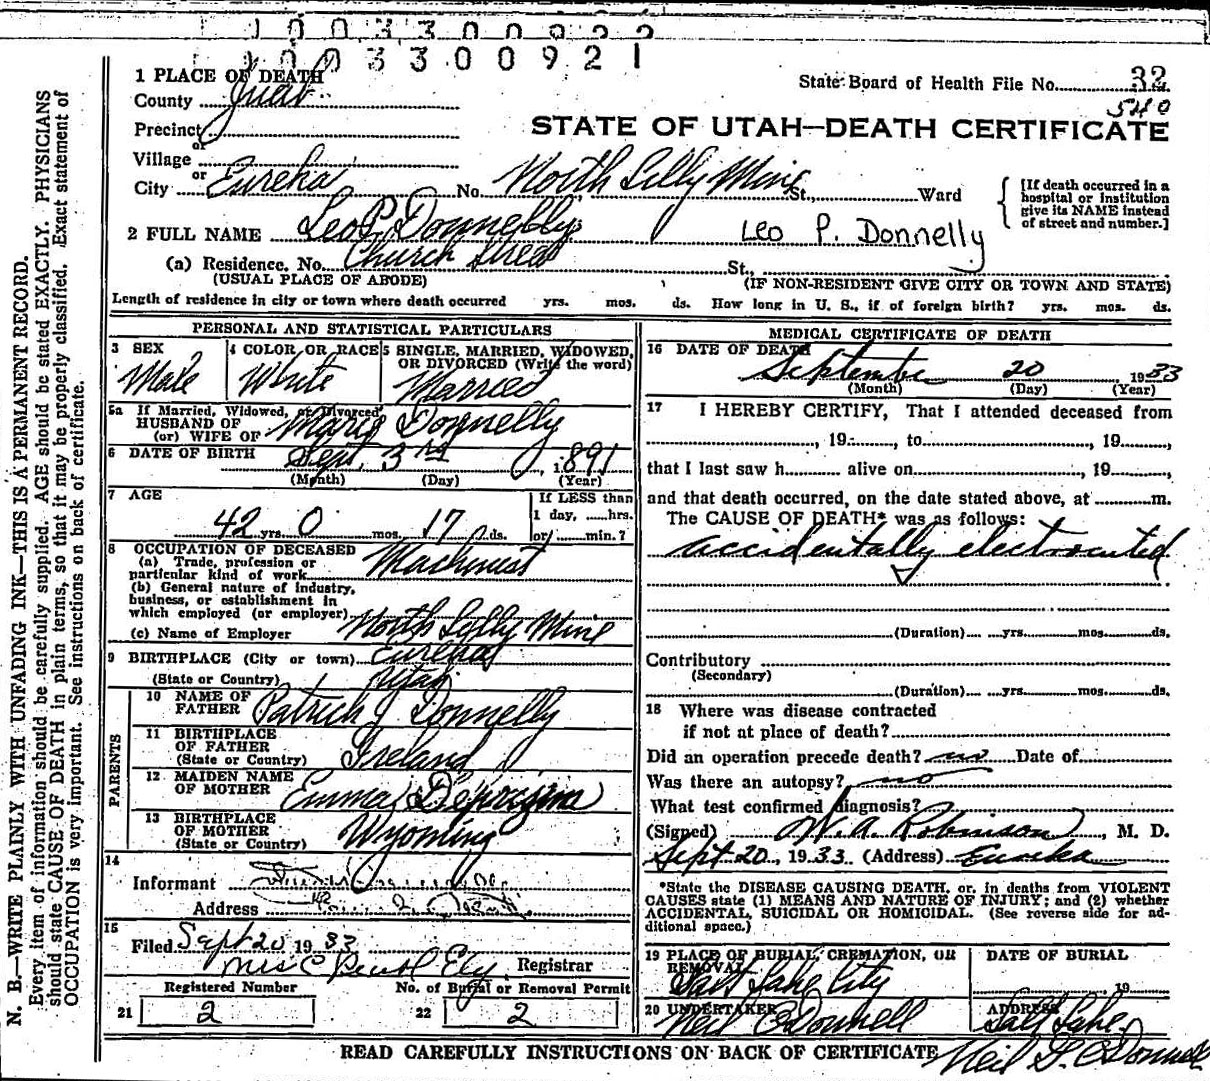 1 0 0 3 3 0 0 9 2 2
1 0 0 3 3 0 0 9 2 1
1 PLACE OF DEATH
State Board of Health File No. 32
540
County Juab
STATE OF UTAH—DEATH CERTIFICATE
Precinct
or
Village
or
City Eureka No. North Lilly Mine St., Ward
[If death occurred in a hospital or institution give its NAME instead of street and number.]
2 FULL NAME Leo P. Donnelly Leo P. Donnelly
(a) Residence. No. Church Street St.,
(USUAL PLACE OF ABODE) (IF NON-RESIDENT GIVE CITY OR TOWN AND STATE)
Length of residence in city or town where death occurred yrs. mos. ds. How long in U. S., if of foreign birth? yrs. mos. ds.
PERSONAL AND STATISTICAL PARTICULARS
3 SEX Male
4 COLOR OR RACE White
5 SINGLE, MARRIED, WIDOWED, OR DIVORCED (Write the word) Married
5a If Married, Widowed, or Divorced
HUSBAND OF
(or) WIFE OF Mary Donnelly
6 DATE OF BIRTH Sept. 3rd, 1891
(Month) (Day) (Year)
7 AGE
42 yrs. 0 mos. 17 ds.
If LESS than
1 day, hrs.
or min.?
8 OCCUPATION OF DECEASED
(a) Trade, profession or
particular kind of work Machinist
(b) General nature of industry,
business, or establishment in
which employed (or employer) North Lilly Mine
(c) Name of Employer
9 BIRTHPLACE (City or town) Eureka
(State or Country) Utah
PARENTS
10 NAME OF
FATHER Patrick J Donnelly
11 BIRTHPLACE
OF FATHER
(State or Country) Ireland
12 MAIDEN NAME
OF MOTHER Emma
13 BIRTHPLACE
OF MOTHER
(State or Country) Wyoming
14
Informant
Address
15
Filed Sept 20 1933
Mrs C Pearl Ely, Registrar
Registered Number No. of Burial or Removal Permit
21 2 22 2
MEDICAL CERTIFICATE OF DEATH
16 DATE OF DEATH
September 20, 1933
(Month) (Day) (Year)
17 I HEREBY CERTIFY, That I attended deceased from
, 19 , to , 19 ,
that I last saw h alive on , 19 ,
and that death occurred, on the date stated above, at m.
The CAUSE OF DEATH* was as follows:
accidentally electrocuted
(Duration) yrs. mos. ds.
Contributory
(Secondary)
(Duration) yrs. mos. ds.
18 Where was disease contracted
if not at place of death?
Did an operation precede death? no Date of
Was there an autopsy? no
What test confirmed diagnosis?
(Signed) W. A. Robinson, M. D.
Sept 20, 1933 (Address) Eureka
*State the DISEASE CAUSING DEATH, or, in deaths from VIOLENT
CAUSES state (1) MEANS AND NATURE OF INJURY; and (2) whether
ACCIDENTAL, SUICIDAL OR HOMICIDAL. (See reverse side for ad-
ditional space.)
19 PLACE OF BURIAL, CREMATION, OR
REMOVAL
Salt Lake City
DATE OF BURIAL
19
20 UNDERTAKER
Neil O'Donnell
ADDRESS
Salt Lake.
Neil G. O'Donnell
READ CAREFULLY INSTRUCTIONS ON BACK OF CERTIFICATE
N. B.—WRITE PLAINLY WITH UNFADING INK—THIS IS A PERMANENT RECORD.
Every item of information should be carefully supplied. AGE should be stated EXACTLY. PHYSICIANS
should state CAUSE OF DEATH in plain terms, so that it may be properly classified. Exact statement of
OCCUPATION is very important. See instructions on back of certificate.